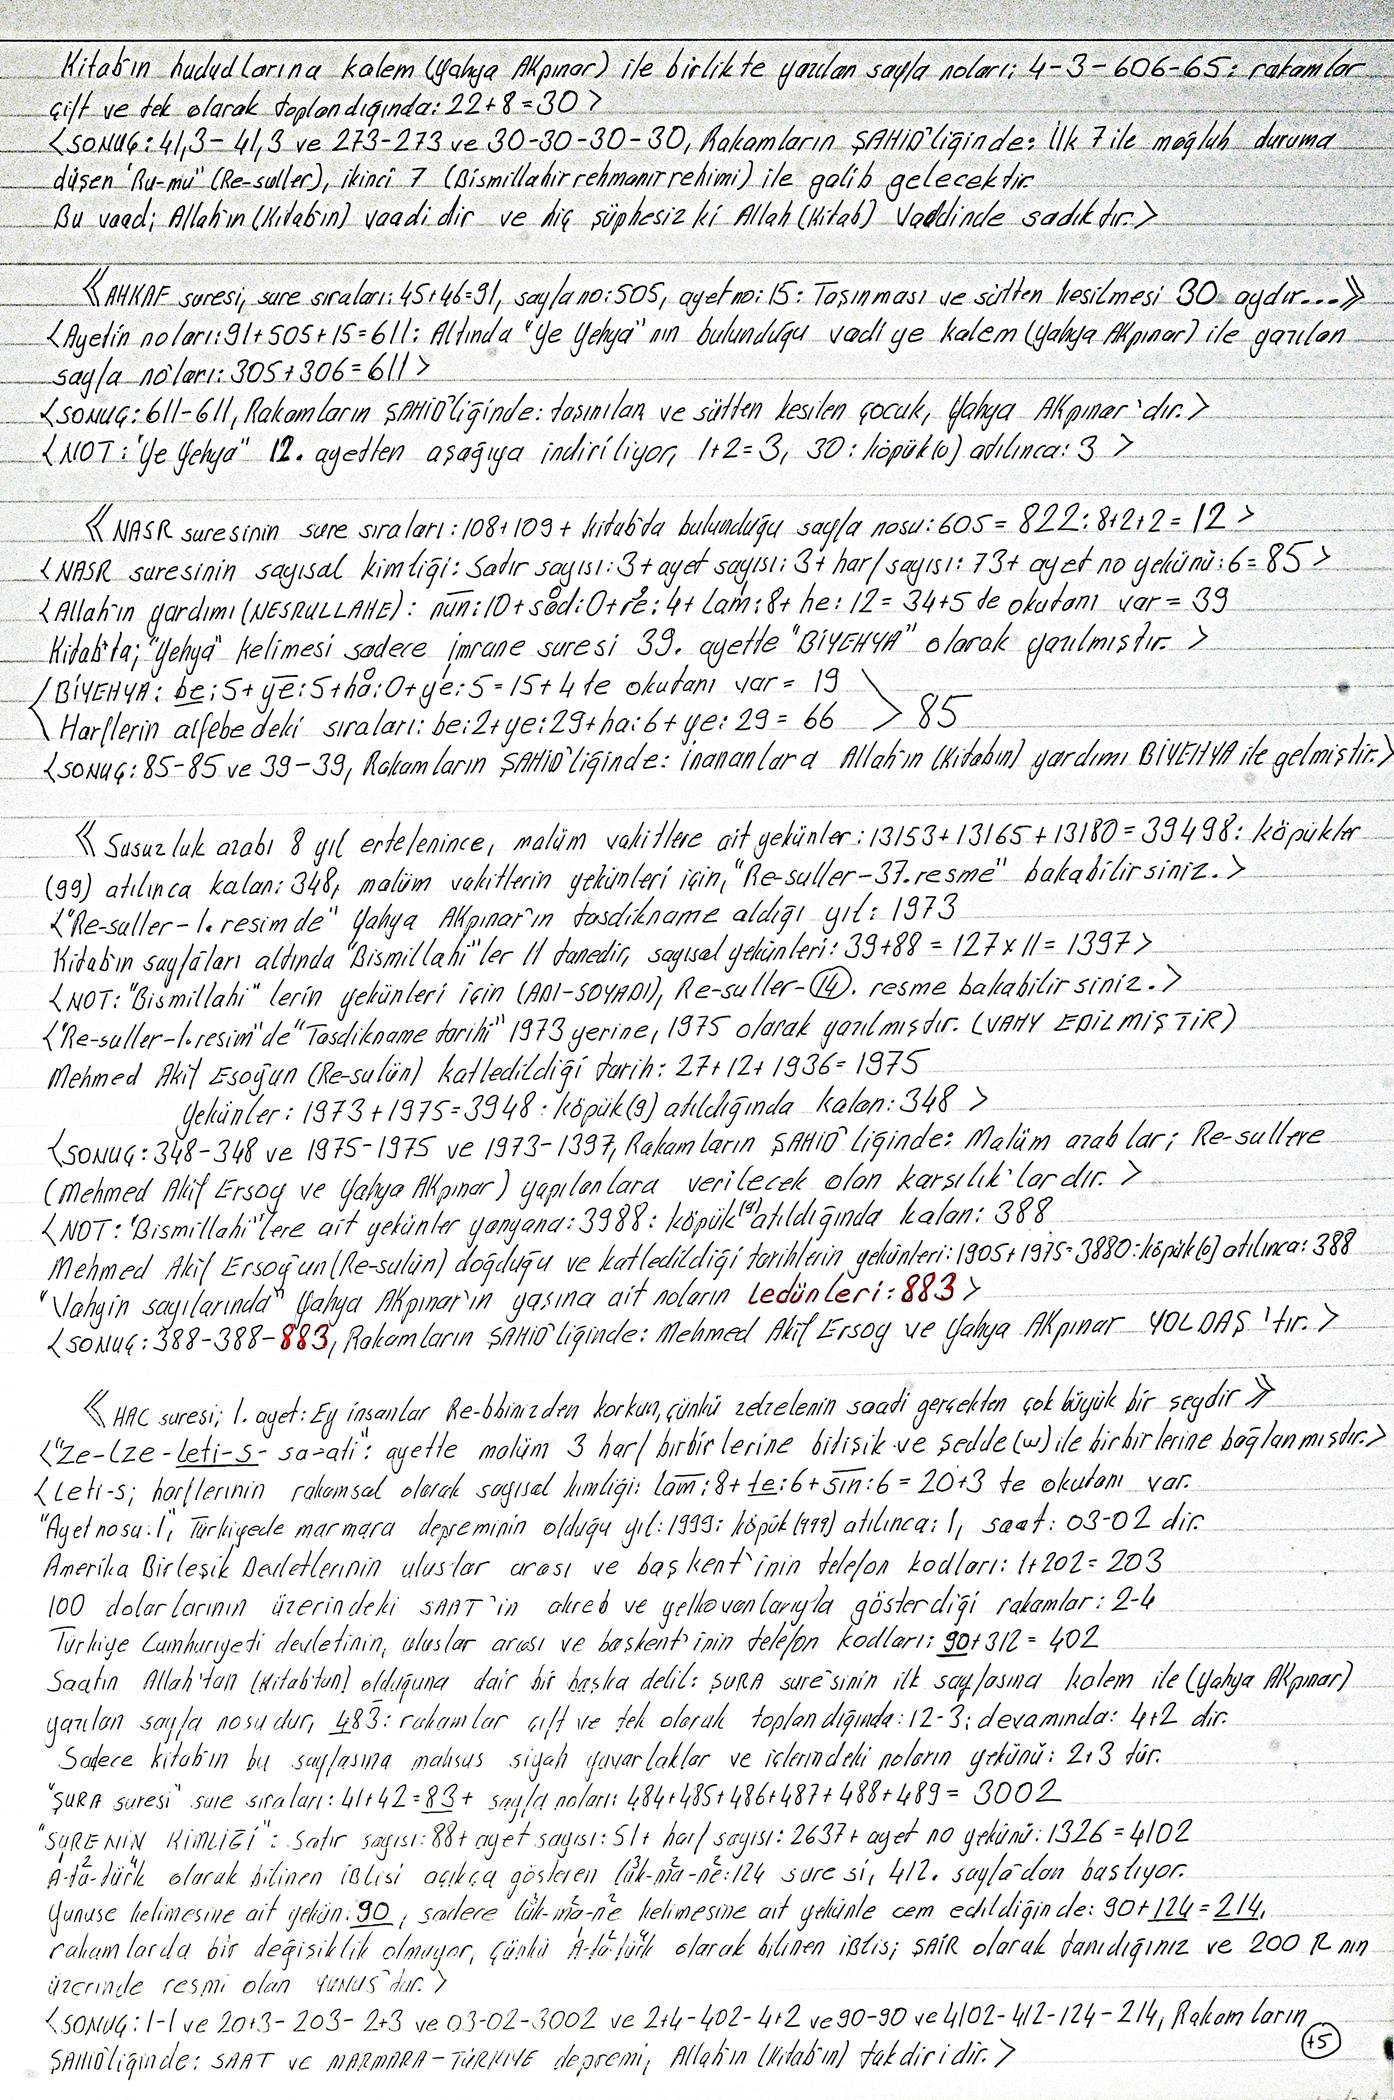 Kitab'ın hududlarına kalem (Yahya AKpınar) ile birlikte yazılan sayfa noları; 4-3-606-65: rakamlar
çift ve tek olarak toplandığında: 22+8=30 >
<SONUÇ: 41,3-41,3 ve 273-273 ve 30-30-30-30, Rakamların ŞAHİD'liğinde: İlk 7 ile mağlub duruma
düşen "Ru-mu" (Re-suller), ikinci 7 (Bismillahirrehmanırrehimi) ile galib gelecektir.
Bu vaad; Allah'ın (Kitab'ın) vaadidir ve hiç şüphesiz ki Allah (Kitab) vaadinde sadıktır.>
《AHKAF suresi, sure sıraları: 45+46=91, sayfa no: 505, ayet no: 15: Taşınması ve sütten kesilmesi 30 aydır...》
<Ayetin noları: 91+505+15=611: Altında "Ye Yehya"nın bulunduğu vadiye kalem (Yahya AKpınar) ile yazılan
sayfa no'ları: 305+306=611>
<SONUÇ: 611-611, Rakamların ŞAHİD'liğinde: taşınılan ve sütten kesilen çocuk, Yahya AKpınar'dır.>
<NOT: "Ye Yehya" 12. ayetten aşağıya indiriliyor, 1+2=3, 30: köpük(0) atılınca: 3 >
《NASR suresinin sure sıraları: 108+109+ kitab'ta bulunduğu sayfa nosu: 605 = 822: 8+2+2= 12 >
<NASR suresinin sayısal kimliği: Satır sayısı: 3+ ayet sayısı: 3+ harf sayısı: 73+ ayet no yekünü: 6=85>
<Allah'ın yardımı (NESRULLAHE): nün: 10+ såd: 0+ re: 4+ Lam: 8+ he: 12= 34+5 te okutanı var = 39
Kitab'ta; "Yehya" kelimesi sadece imrane suresi 39. ayette "BİYEHYA" olarak yazılmıştır. >
<BİYEHYA: be: 5+ ye: 5+ hå: 0+ ye: 5= 15+4 te okutanı var = 19
Harflerin alfebedeki sıraları: be: 2+ ye: 29+ ha: 6+ ye: 29 = 66 > 85
<SONUÇ: 85-85 ve 39-39, Rakamların ŞAHİD'liğinde: inananlara Allah'ın (Kitabın) yardımı BİYEHYA ile gelmiştir.>
《Susuzluk azabı 8 yıl ertelenince, malüm vakitlere ait yekünler: 13153+13165+13180= 39498: köpükler
(99) atılınca kalan: 348, malüm vakitlerin yekünleri için, "Re-suller-37. resme" bakabilirsiniz.>
<"Re-suller-1. resimde" Yahya AKpınar'ın tasdikname aldığı yıl: 1973
Kitab'ın sayfaları altında "Bismillahi"ler 11 tanedir, sayısal yekünleri: 39+88 = 127x11= 1397>
<NOT: "Bismillahi" lerin yekünleri için (ADI-SOYADI), Re-suller-14. resme bakabilirsiniz.>
<"Re-suller-1. resim"de "Tasdikname tarihi" 1973 yerine, 1975 olarak yazılmıştır. (VAHY EDİLMİŞTİR)
Mehmed Akif Esoğun (Re-sulün) katledildiği tarih: 27+12+1936= 1975
Yekünler: 1973+1975=3948: köpük(9) atıldığında kalan: 348 >
<SONUÇ: 348-348 ve 1975-1975 ve 1973-1397, Rakamların ŞAHİD'liğinde: Malüm azablar; Re-sullere
(Mehmed Akif Ersoy ve Yahya AKpınar) yapılanlara verilecek olan karşılık'lardır. >
<NOT: "Bismillahi"lere ait yekünler yanyana: 3988: köpük(9) atıldığında kalan: 388
Mehmed Akif Ersoğun (Re-sulün) doğduğu ve katledildiği tarihlerin yekünleri: 1905+1975=3880: köpük(0) atılınca: 388
"Vahyin sayılarında" Yahya AKpınar'ın yaşına ait noların Ledünleri: 883>
<SONUÇ: 388-388-883, Rakamların ŞAHİD'liğinde: Mehmed Akif Ersoy ve Yahya AKpınar YOLDAŞ'tır. >
《HAC suresi; 1. ayet: Ey insanlar Re-bbinizden korkun, çünkü zelzelenin saati gerçekten çok büyük bir şeydir》
<"Ze-lze-leti-s-sa-ati": ayette malüm 3 harf birbirlerine bitişik ve şedde (w) ile birbirlerine bağlanmıştır.>
<Leti-s; harflerinin rakamsal olarak sayısal kimliği: lam: 8+ te: 6+ sin: 6= 20+3 te okutanı var.
"Ayet nosu: 1", Türkiyede marmara depreminin olduğu yıl: 1999: köpük (999) atılınca: 1, saat: 03-02 dir.
Amerika Birleşik Devletlerinin uluslar arası ve başkent'inin telefon kodları: 1+202= 203
100 dolarlarının üzerindeki SAAT'in akreb ve yelkovanlarıyla gösterdiği rakamlar: 2-4
Türkiye Cumhuriyeti devletinin, uluslar arası ve başkent'inin telefon kodları: 90+312= 402
Saatın Allah'tan (Kitab'tan) olduğuna dair bir başka delil: ŞURA sure'sinin ilk sayfasına kalem ile (Yahya AKpınar)
yazılan sayfa nosudur, 483: rakamlar çift ve tek olarak toplandığında: 12-3; devamında: 4+2 dir.
Sadece kitab'ın bu sayfasına mahsus siyah yuvarlaklar ve içlerindeki noların yekünü: 2+3 tür.
"ŞURA suresi" sure sıraları: 41+42=83+ sayfa noları: 484+485+486+487+488+489= 3002
"SURENİN KİMLİĞİ": Satır sayısı: 88+ ayet sayısı: 51+ harf sayısı: 2637+ ayet no yekünü: 1326=4102
A-ta-türk olarak bilinen iBlisi açıkça gösteren lük-ma-ne: 124 suresi, 412. sayfa'dan başlıyor.
Yunuse kelimesine ait yekün: 90, sadece lük-ma-ne kelimesine ait yekünle cem edildiğinde: 90+124=214,
rakamlarda bir değişiklik olmuyor, çünkü A-ta-türk olarak bilinen iBlis; ŞAİR olarak tanıdığınız ve 200 TL nin
üzerinde resmi olan YUNUS'tur. >
<SONUÇ: 1-1 ve 20+3-203-2+3 ve 03-02-3002 ve 2+4-402-4+2 ve 90-90 ve 4102-412-124-214, Rakamların
ŞAHİD'liğinde: SAAT ve MARMARA-TÜRKİYE depremi, Allah'ın (Kitab'ın) takdiridir.>
+5